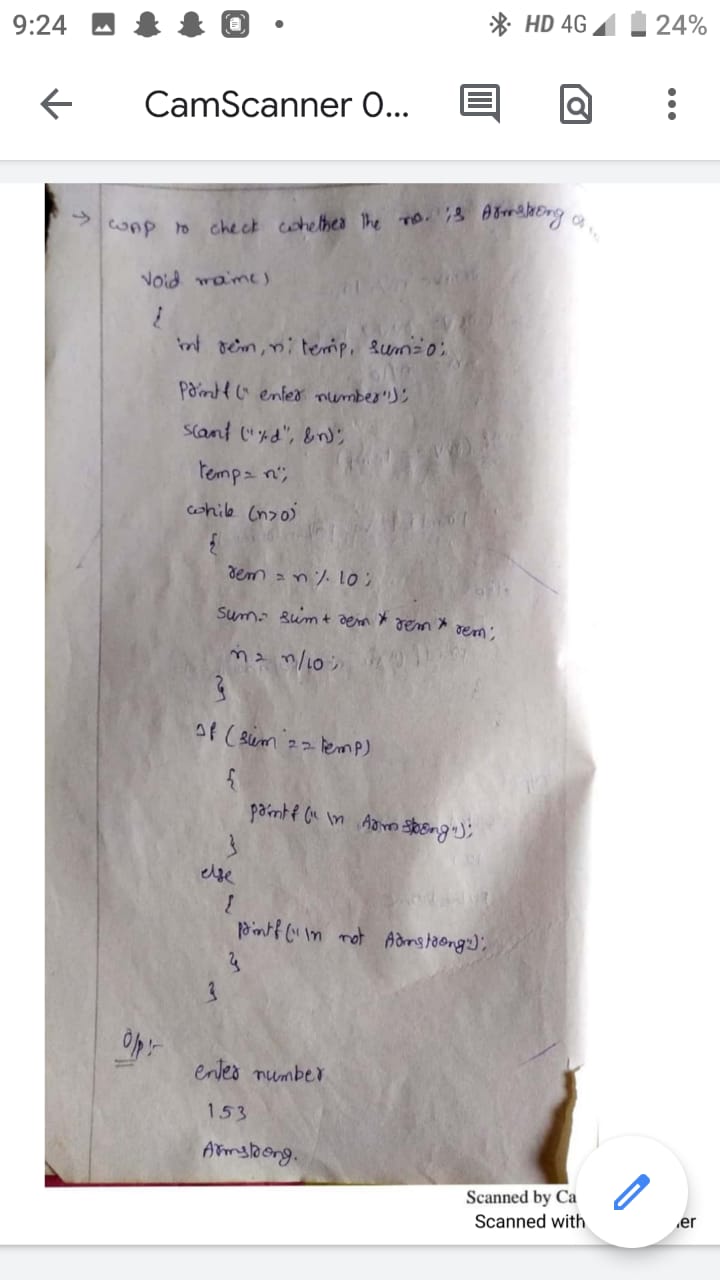 9:24 HD 4G 24%
CamScanner 0...
→ WAP to check whether the no. is Armstrong or
void main()
{
int rem, n, temp, sum=0;
printf(" enter number");
scanf ("%d", &n);
temp = n;
while (n>0)
{
rem = n % 10;
sum = sum + rem * rem * rem;
n = n/10;
}
If (sum == temp)
{
printf ("\n Armstrong");
}
else
{
printf ("\n not Armstrong");
}
}
O/p:-
enter number
153
Armstrong.
Scanned by Ca
Scanned with er